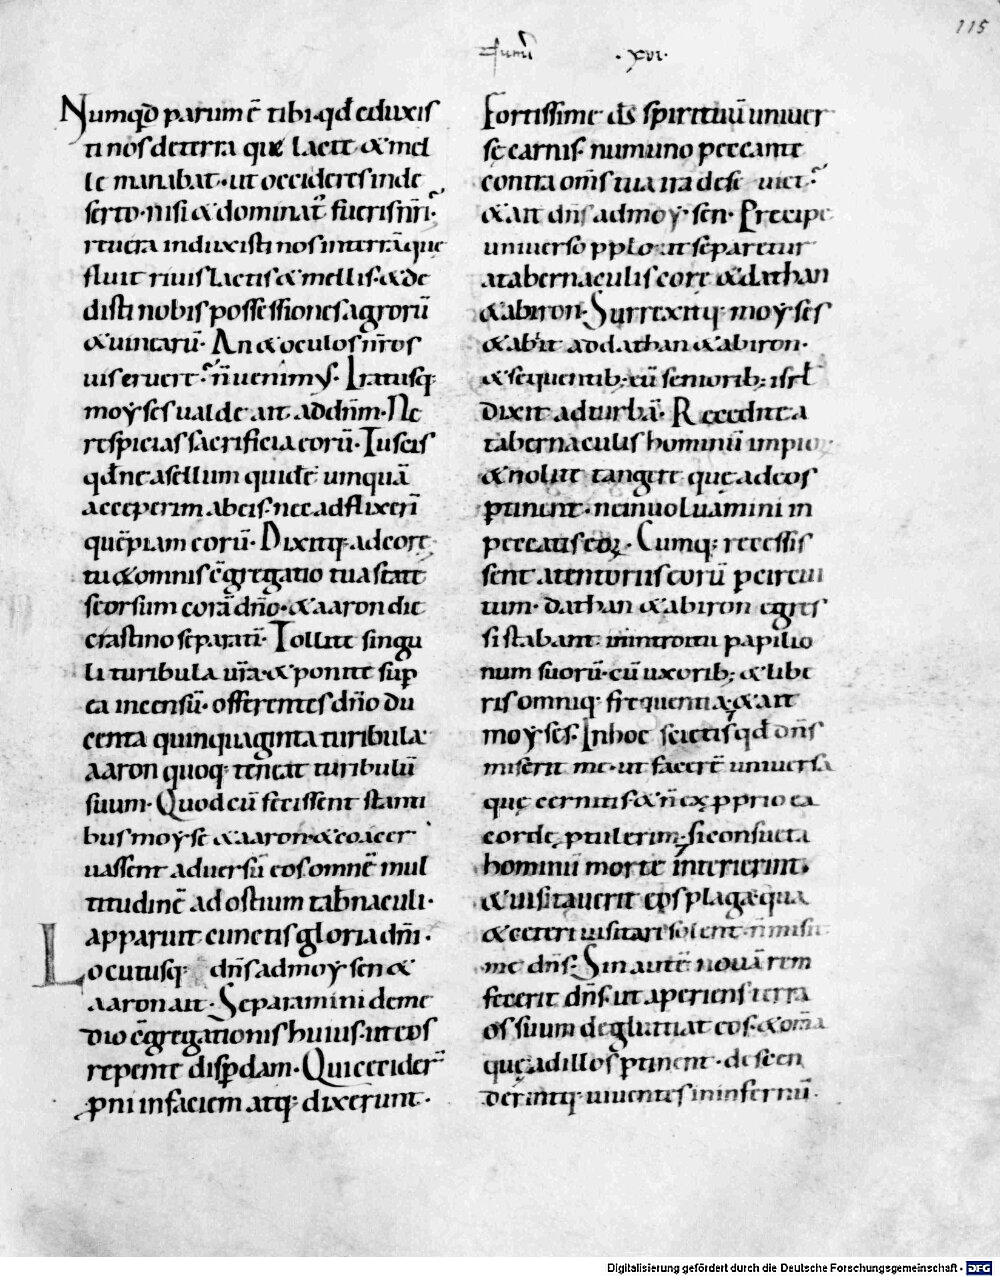 115
· xvi·
Numqđ parum ē tibi· qđ eduxis
ti nos de terra que lacte & mel
le manabat· ut occideres in de
serto· nisi & dominat̄ fueris nr̄i·
revera induxisti nos in terrā que
fluit riuis lactis & mellis· & de
disti nobis possessiones agrorū
& uinearū· An & oculos nr̄os
uis eruere· n̄ uenimus· Iratusq;
moyses ualde ait ad dn̄m· Ne
respicias sacrificia eorū· Tu scis
qđ ne asellum quidē umquā
acceperim ab eis· nec adflixerī
quēpiam eorū· Dixitq; ad core
tu & omnis c̄gregatio tua state
seorsum corā dn̄o· & aaron die
crastino separati· Tollite singu
li turibula ur̄a· & ponite sup̄
ea incensū· offerentes dn̄o du
centa quinquaginta turibula·
aaron quoq; teneat turibulū
suum· Quod cū fecissent stanti
bus moyse & aaron· & coacer
uassent aduersū eos omnē mul
titudinē ad ostium tab̄naculi·
apparuit cunctis gloria dn̄i·
Locutusq; dn̄s ad moysen &
aaron ait· Separamini de me
dio c̄gregationis huius· ut eos
repente disp̄dam· Qui ceciderꝉ
proni in faciem atq; dixerunt·
Fortissime ds̄ spirituū uniuer
sę carnis· num uno peccante
contra om̄s tua ira deseuiet·
& ait dn̄s ad moysen· Precipe
uniuerso pp̄lo· ut separetur
a tabernaculis core & dathan
& abiron· Surrexitq; moyses
& abiit ad dathan & abiron·
& sequentib; eū seniorib; isrl̄
dixit ad turbā· Recedite a
tabernaculis hominū impioꝝ
& nolite tangere quę ad eos
p̄tinent· ne inuoluamini in
peccatis eoꝝ· Cumq; recessis
sent a tentoriis eorū p̄ circui
tum· dathan & abiron egres
si stabant in introitu papilio
num suorū· cū uxorib; & libe
ris omniq; frequentia; & ait
moyses· In hoc scietis qđ dn̄s
miserit me· ut facerē uniuersa
quę cernitis· & n̄ ex proprio ea
corde p̄tulerim· si consueta
hominū morte interierint·
& uisitauerit eos plaga· qua
& ceteri uisitari solent· n̄ misit
me dn̄s· Sin autē nouā rem
fecerit dn̄s· ut aperiens terra
os suum degluttiat eos· & om̄ia
quę ad illos p̄tinent· descen
derintq; uiuentes in infernū·
Digitalisierung gefördert durch die Deutsche Forschungsgemeinschaft · DFG